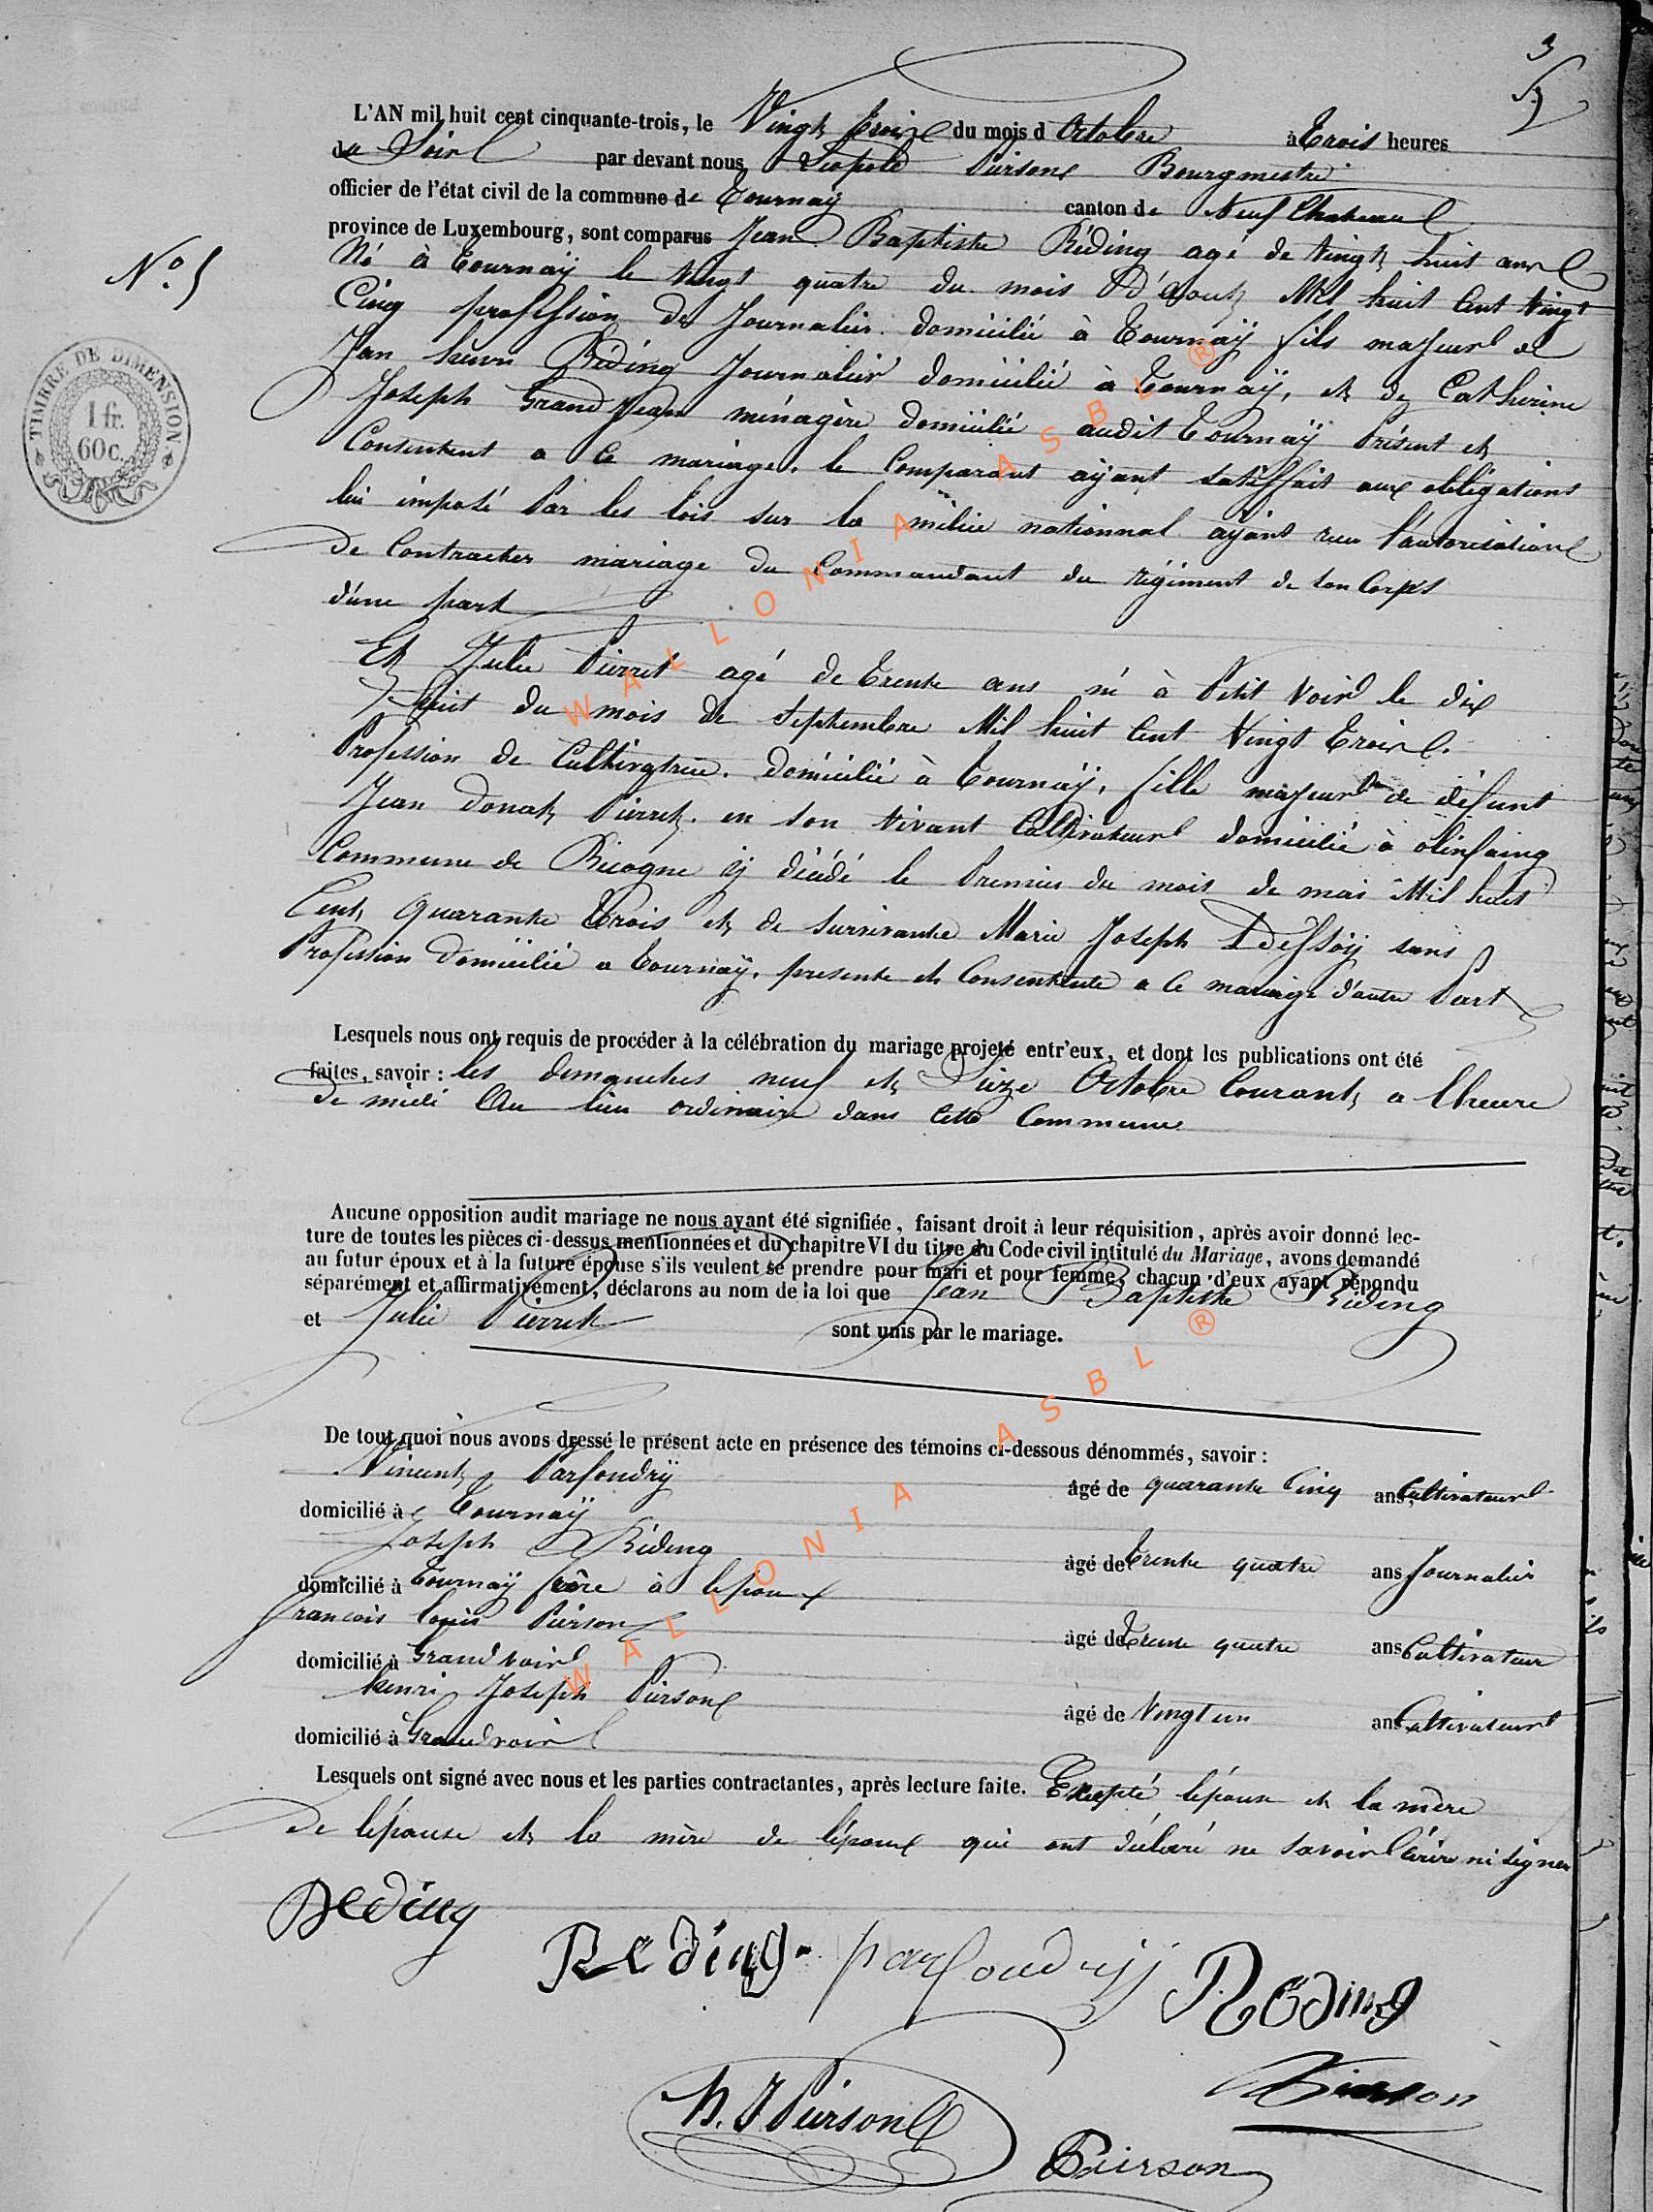 3
5
L'AN mil huit cent cinquante-trois, le Vingt trois du mois d'Octobre à Trois heures
du Soir par devant nous Léopold Pierson Bourgmestre
officier de l'état civil de la commune de Tournay canton de Neufchateau
province de Luxembourg, sont comparus Jean Baptiste Réding agé de vingt huit ans
N° 5
Né à Tournaÿ le vingt quatre du mois d'aout Mil huit Cent vingt
Cinq profession de Journalier domicilié à Tournaÿ fils majeur de
TIMBRE DE DIMENSION
1 fr.
60 c.
Jean henri Réding Journalier domicilié à Tournaÿ, et de Catherine
Joseph Grand Jean ménagère domicilié audit Tournaÿ Présent et
Consentent a Ce mariage. le Comparant ayant satisfait aux obligations
lui imposé Par les lois sur la milice nationnal ayant reçu l'autorisation
de Contracter mariage du Commandant du régiment de son Corps
d'une part
Et Julie Pierret agé de Trente ans né à Petit Voir le dix
huit du mois de Septembre Mil huit Cent Vingt Trois.
Profession de Cultivatrice. domicilié à Tournaÿ, fille majeure de défunt
Jean donat Pierret. en son vivant Cultivateur domicilié à olinfaing
Commune de Bicogne ÿ décédé le Premier du mois de mai Mil huit
Cent quarante Trois et de survivante Marie Joseph Dessoÿ sans
Profession domicilié a Tournaÿ, presente et Consentente a Ce mariage d'autre Part
Lesquels nous ont requis de procéder à la célébration du mariage projeté entr'eux, et dont les publications ont été
faites, savoir : les dimanches neuf et Sieze Octobre Courant, a lheure
de midi Au lieu ordinaire dans Cette Commune
Aucune opposition audit mariage ne nous ayant été signifiée, faisant droit à leur réquisition, après avoir donné lec-
ture de toutes les pièces ci-dessus mentionnées et du chapitre VI du titre du Code civil intitulé du Mariage, avons demandé
au futur époux et à la future épouse s'ils veulent se prendre pour mari et pour femme, chacun d'eux ayant répondu
séparément et affirmativement, déclarons au nom de la loi que Jean Baptiste Réding
et Julie Pierret sont unis par le mariage.
De tout quoi nous avons dressé le présent acte en présence des témoins ci-dessous dénommés, savoir :
Vincent Parfondrÿ âgé de quarante Cinq ans Cultivateur
domicilié à Tournaÿ
Joseph Réding âgé de Trente quatre ans Journalier
domicilié à Tournaÿ frère à lepoux
francois louis Pierson âgé de Trente quatre ans Cultivateur
domicilié à Grandvoir
henri Joseph Pierson âgé de Vingt un ans Cultivateur
domicilié à Grandvoir
Lesquels ont signé avec nous et les parties contractantes, après lecture faite. Excepté lépouse et la mère
De lépouse et la mère de lépoux qui ont déclaré ne savoir écrire ni signer
Reding
Reding parfondrÿ Réding
Pierson
h. J Pierson
Pairson
WALLONIA ASBL ®
WALLONIA ASBL ®